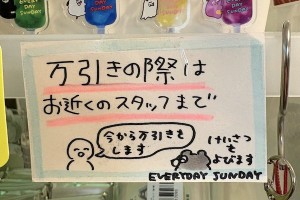 EVERY
DAY
SUNDAY
DAY
SUNDAY
万引きの際は
お近くのスタッフまで
今から万引きを
します
けいさつ
を
よびます
EVERYDAY SUNDAY